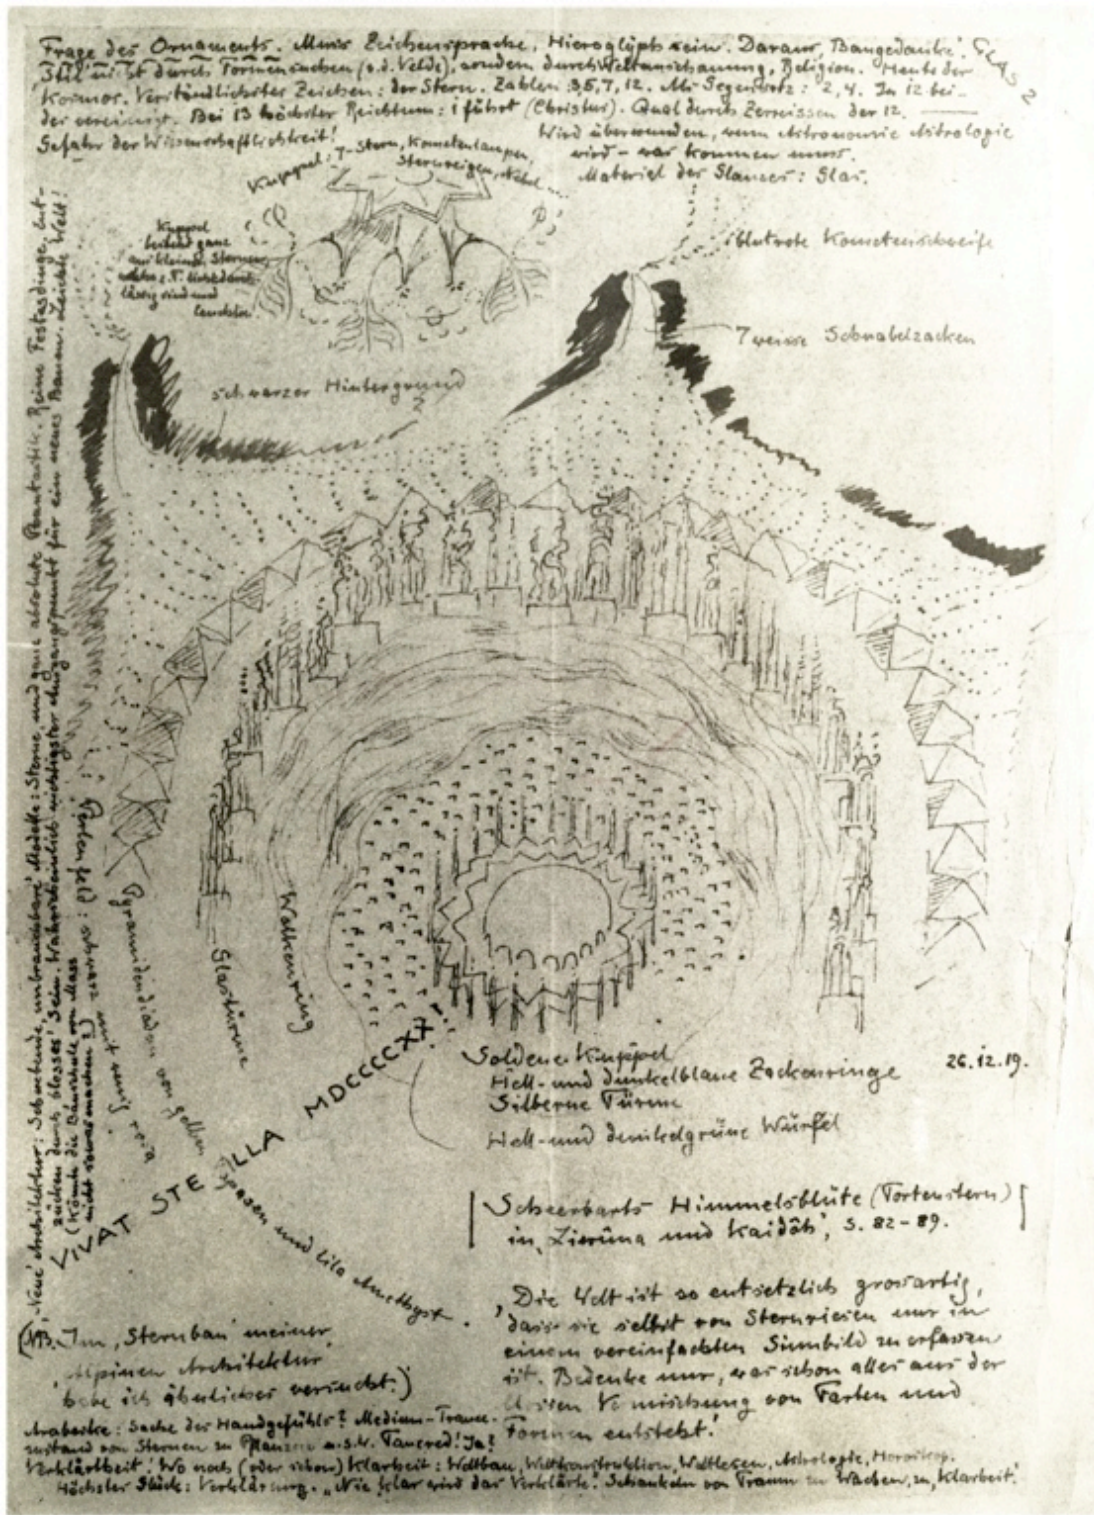 Frage des Ornaments. Muss Zeichensprache, Hieroglyph sein. Daraus 'Baugedanke'. GLAS 2
Stil nicht durch Formensuchen (v.d. Velde), sondern durch Weltanschauung, Religion. Heute der
Kosmos. Verständlichster Zeichen: der Stern. Zahlen 3,5,7,12. Als Gegensatz: 2, 4. In 12 bei-
des vereinigt. Bei 13 höchster Reichtum: 1 führt (Christus). Qual durch Zerreissen der 12.
Gefahr der Wissenschaftlichkeit! Wird überwunden, wenn Astronomie Astrologie
wird – was kommen muss.
Material des Glanzes: Glas.
Kuppel: 7-Stern, Kometenlampen,
Sternreigen, Nebel...
Kuppel
ganz
aus kleinen Sternen,
welche z.T.
lässig sind und
leuchten.
blutrote Kometenschweife
7 weisse Schnabelzacken
schwarzer Hintergrund
'Neue' Architektur: Schwebende, unbrauchbare Modelle: Sterne, und ganz absolute Phantastik. Reine Festesdinge, ent-
zücken durch blosses 'Sein'. Wahrscheinlich wichtigster Ausgangspunkt für ein neues Bauen. Leichte Welt!
(Könnte die Bauschule von Mass
nicht sowas machen?)
schwarz mit wenig rosa
Pyramidendiadem von gelben Topasen und lila Amethyst.
Glastürme
Wolkenring
VIVAT STELLA MDCCCCXX!
Goldene Kuppel
Hell- und dunkelblaue Zackenringe
Silberne Türme
Hell- und dunkelgrüne Würfel
26.12.19.
Scheerbarts Himmelsblüte (Tortenstern)
in 'Liwûna und Kaidôh', S. 82–89.
'Die Welt ist so entsetzlich grossartig,
dass sie selbst von Sternriesen nur in
einem vereinfachten Sinnbild zu erfassen
ist. Bedenke nur, was schon alles aus der
blossen Vermischung von Farben und
Formen entsteht.'
(NB. Im 'Sternbau' meiner
'Alpinen Architektur'
habe ich ähnliches versucht.)
Arabeske: Sache des Handgefühls? Medium-Trance-
zustand von Sternen zu Pflanzen u.s.w. Tancred! Ja?
Verklärtheit! Wo noch (oder schon) Klarheit: Weltbau, Weltkonstruktion, Weltlesen, Astrologie, Horoskop.
Höchstes Glück: Verklärung. „Nie klar wird das Verklärte." Schaukeln von Traum zu Wachen, zu 'Klarheit'.